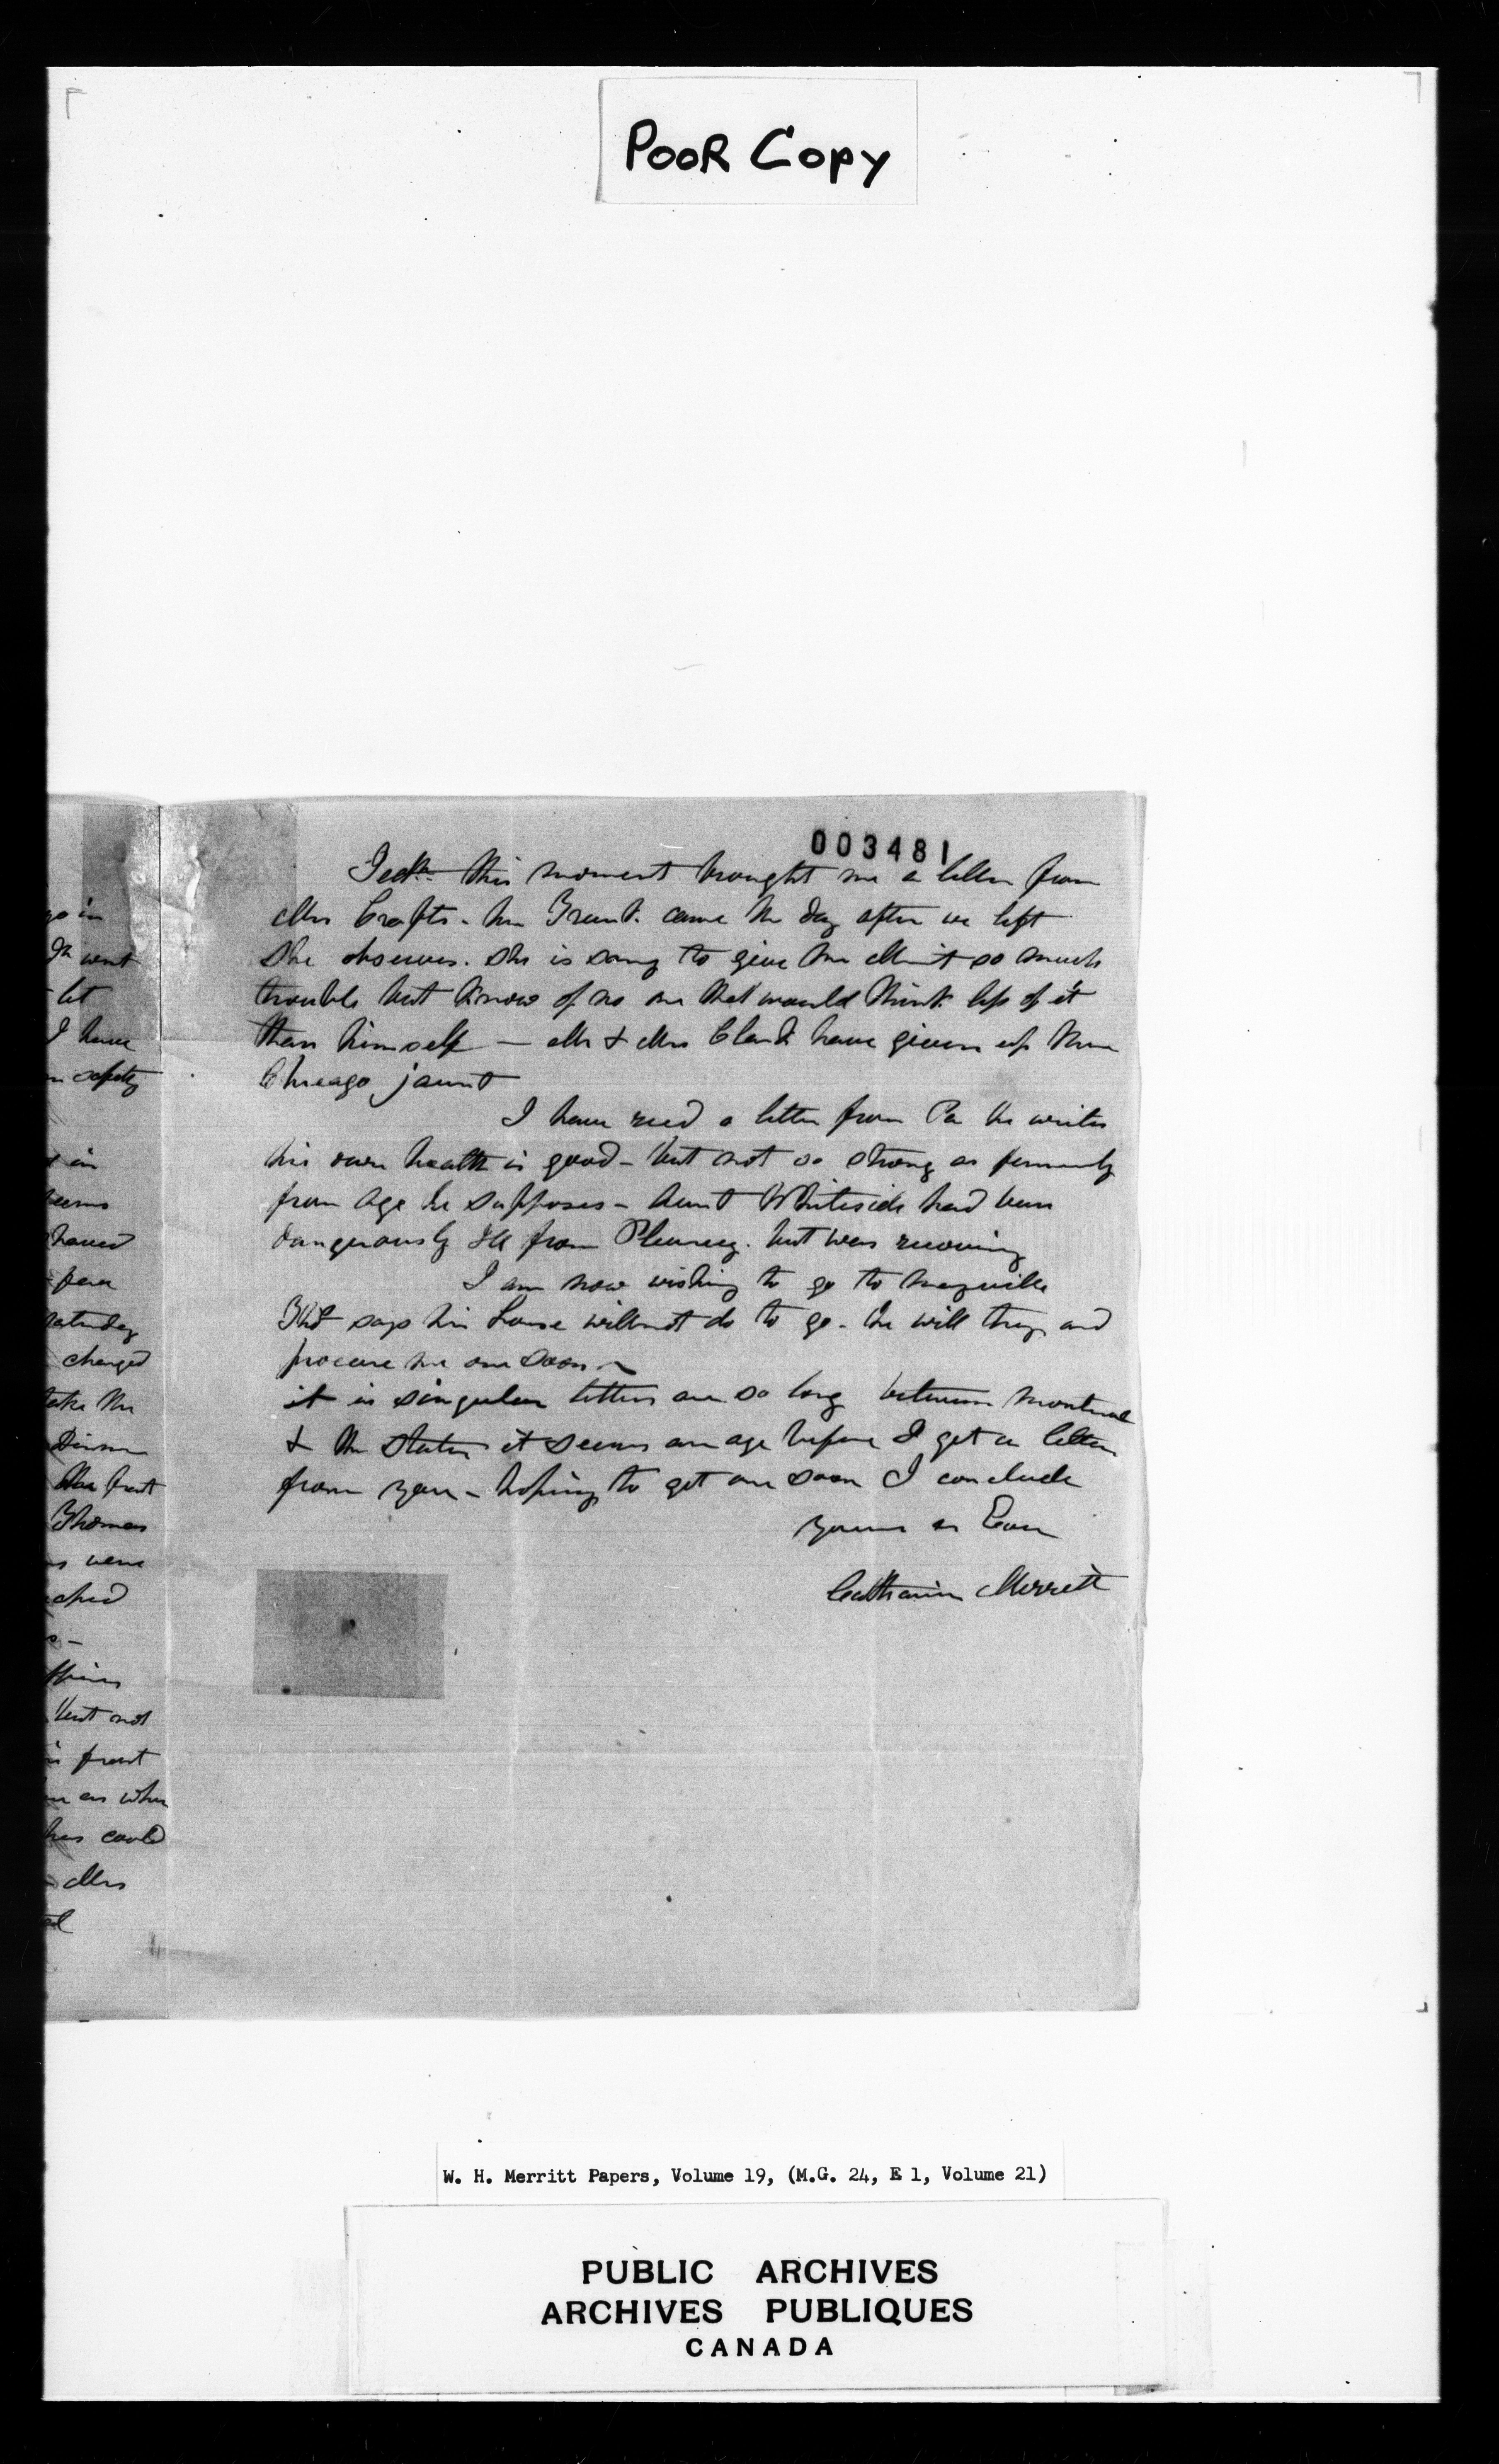 POOR COPY
003481
this moment brought me a letter from
Mrs Crafts. her Trunk. came the day after we left
She observes. she is sorry to give Mr Merritt so much
trouble but know of no one that would think less of it
than himself — Mr & Mrs Clark have given up their
Chicago jaunt
I have recd a letter from Pa he writes
his own health is good – but not so strong as formerly
from age he supposes – Aunt Whiteside had been
dangerously Ill from Pleurecy. but was recovering
I am now wishing to go to Mayville
says his horse will not do to go. he will try and
procure me one soon
it is singular letters are so long between Montreal
& the States it seems an age before I get a letter
from you – hoping to get one soon I conclude
yours as Ever
Catharine Merritt
go in
went
let
I have
safety
in
seems
fear
Saturday
changed
take the
front
Thomas
were
but not
in front
as when
has could
Mrs
W. H. Merritt Papers, Volume 19, (M.G. 24, E 1, Volume 21)
PUBLIC ARCHIVES
ARCHIVES PUBLIQUES
CANADA